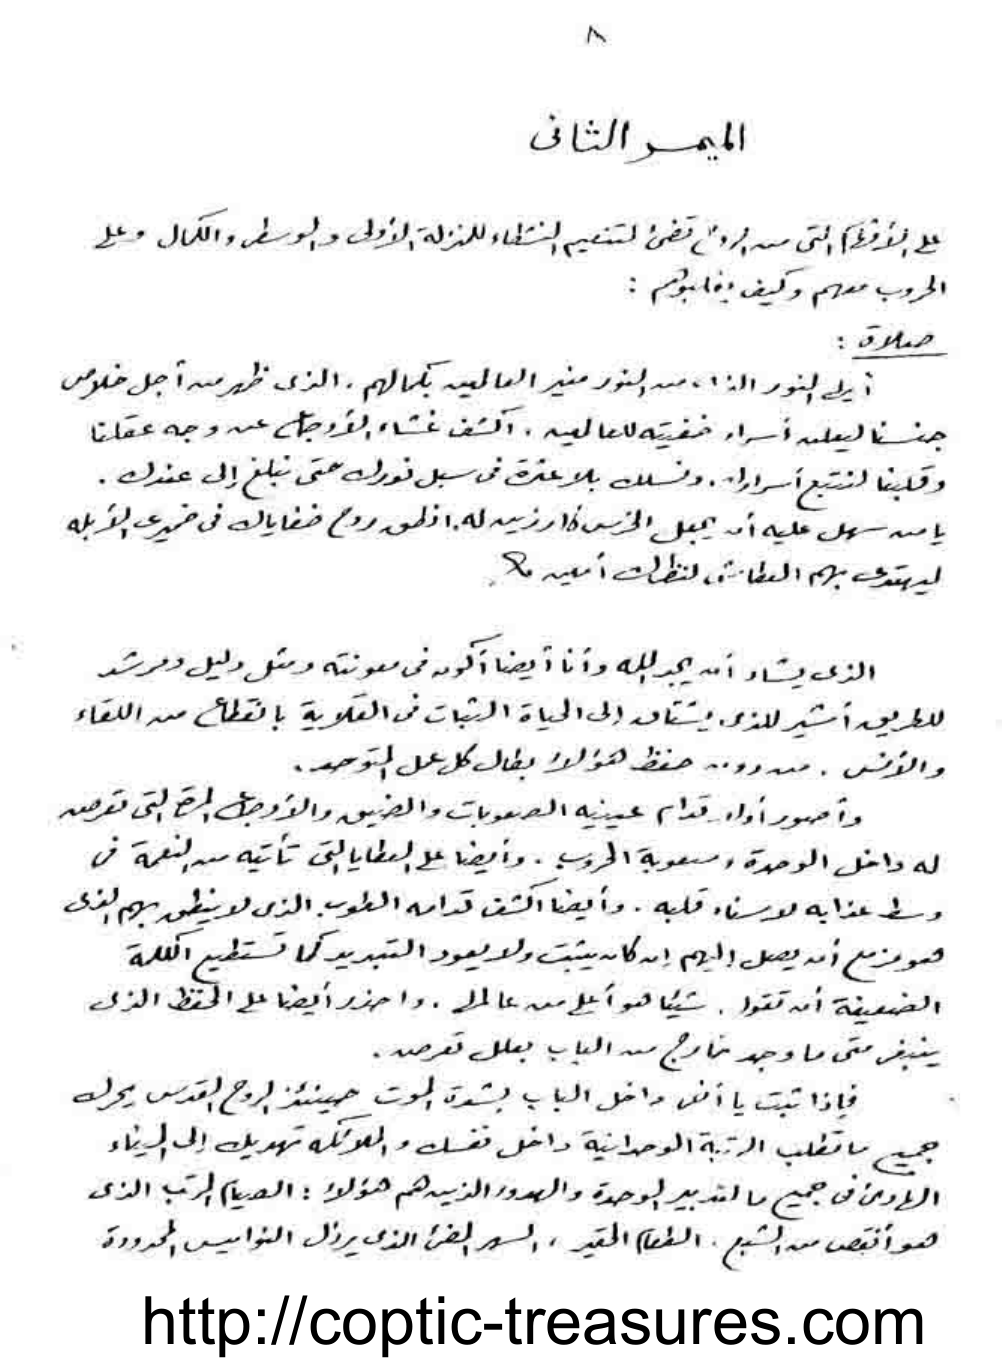 ٨
الميمر الثانى
على الأفهام التى من الروح تضئ لتنعيم النشطاء للمنزلة الأولى والوسطى والكمال وعلى
الحروب معهم وكيف يغلبوهم :
صلاة :
أيها النور الذى من النور منير العالمين بكمالهم . الذى ظهر من أجل خلاص
جنسنا ليعلن أسرار خفيته للعالمين . اكشف غشاء الأوجاع عن وجه عقلنا
وقلبنا لنتتبع أسرارك . ونسلك بلا عثرة فى سبل نورك حتى نبلغ إلى عندك .
يا من سهل عليه أن يجعل الخرس كارزين له . انطق روح خفاياك فى ضميرى الأبله
ليهتدى بهم العطاش لنظرك أمين
الذى يشاء أن يمجد الله وأنا أيضا أكون فى معونته ومثل دليل ومرشد
للطريق أشير للذى يشتاق إلى الحياة الثبات فى القلاية بانقطاع من اللقاء
والأنس . من دون حفظ هؤلاء بطال كل عمل المتوحد .
وأصور أولا قدام عينيه الصعوبات والضيق والأوجاع المرة التى تعرض
له داخل الوحدة وصعوبة الحروب . وأيضا على العطايا التى تأتيه من النعمة فى
وسط عذابه لإسناد قلبه . وأيضا اكشف قدامه الطوب الذى لا ينطق بهم الذى
هو مزمع أن يصل إليهم إن كان يثبت ولا يعود التبديد كما تستطيع الكلمة
الضعيفة أن تقول . شيئا هو أعلى من عالمها . واحزر أيضا على الحفظ الذى
ينبغى متى ما وجد خارج من الباب بعلل تعرض .
فإذا ثبت يا أخى داخل الباب بشدة الموت حينئذ الروح القدس يحرك
جميع ما تطلب الرتبة الوحدانية داخل نفسك والملائكة تهديك إلى الميناء
الهادئ فى جميع ما لتدبير الوحدة والهدوء الذين هم هؤلاء : الصيام المرتب الذى
هو أنقص من الشبع . الطعام الحقير ، السهر المضئ الذى يرذل النواميس المحدودة
http://coptic-treasures.com